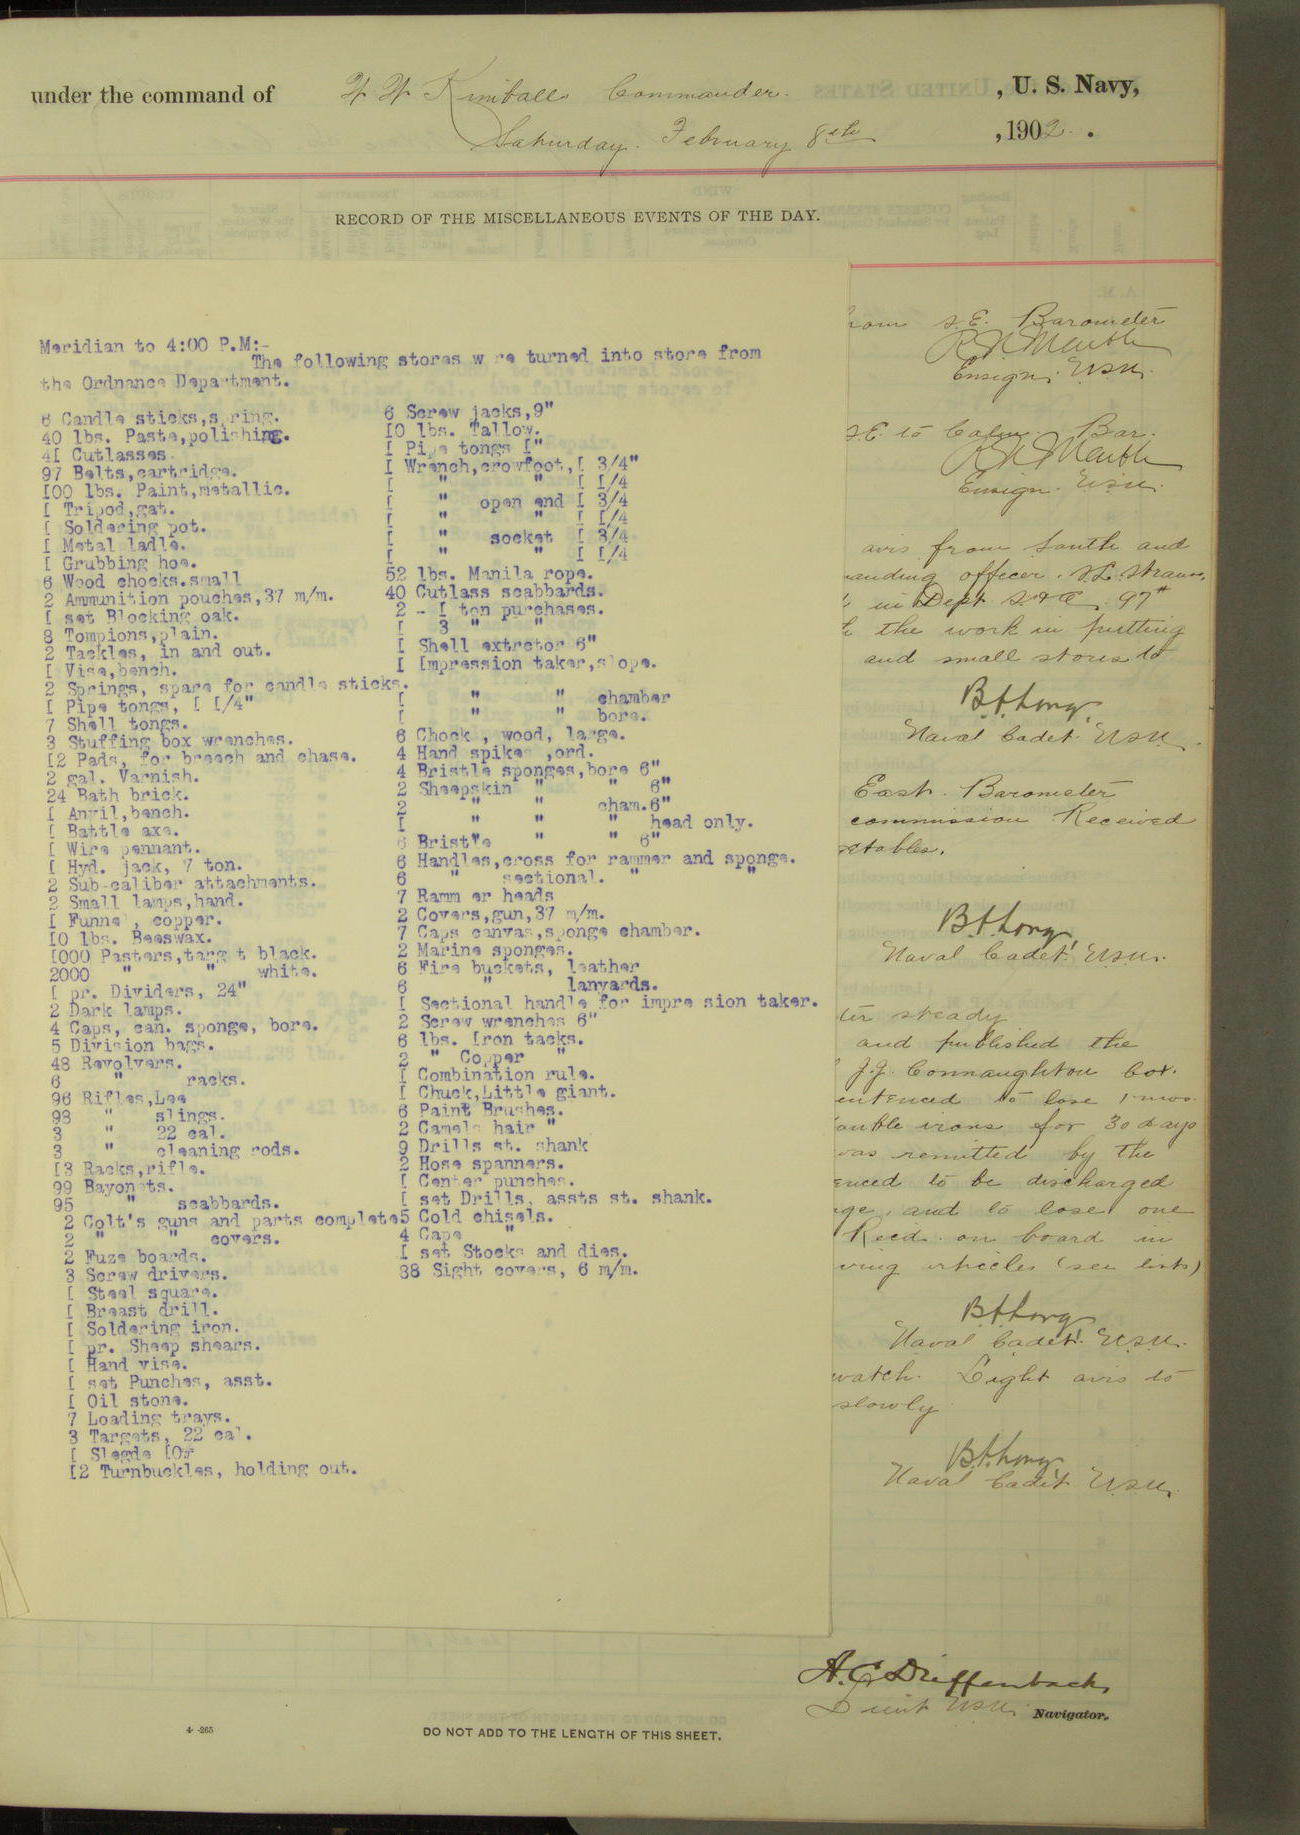 under the command of W W Kimball Commander. , U. S. Navy,
Saturday. February 8th , 1902.
RECORD OF THE MISCELLANEOUS EVENTS OF THE DAY.
Meridian to 4:00 P.M:-
The following stores w re turned into store from
the Ordnance Department.
6 Candle sticks,spring.
40 lbs. Paste,polishing.
4[ Cutlasses.
97 Belts,cartridge.
[00 lbs. Paint,metallic.
[ Tripod,gat.
[ Soldering pot.
[ Metal ladle.
[ Grubbing hoe.
6 Wood chocks.small
2 Ammunition pouches,37 m/m.
[ set Blocking oak.
8 Tompions,plain.
2 Tackles, in and out.
[ Vise,bench.
2 Springs, spare for candle sticks.
[ Pipe tongs, [ [/4"
7 Shell tongs.
3 Stuffing box wrenches.
[2 Pads, for breech and chase.
2 gal. Varnish.
24 Bath brick.
[ Anvil,bench.
[ Battle axe.
[ Wire pennant.
[ Hyd. jack, 7 ton.
2 Sub-caliber attachments.
2 Small lamps,hand.
[ Funnel, copper.
[0 lbs. Beeswax.
[000 Pasters,targ t black.
2000 " " white.
[ pr. Dividers, 24"
2 Dark lamps.
4 Caps, can. sponge, bore.
5 Division bags.
48 Revolvers.
6 " racks.
96 Rifles,Lee
98 " slings.
3 " 22 cal.
3 " cleaning rods.
[3 Racks,rifle.
99 Bayonets.
95 " scabbards.
2 Colt's guns and parts complete
2 " " covers.
2 Fuze boards.
3 Screw drivers.
[ Steel square.
[ Breast drill.
[ Soldering iron.
[ pr. Sheep shears.
[ Hand vise.
[ set Punches, asst.
[ Oil stone.
7 Loading trays.
3 Targets, 22 cal.
[ Slegde [0#
[2 Turnbuckles, holding out.
6 Screw jacks,9"
[0 lbs. Tallow.
[ Pipe tongs ["
[ Wrench,crowfoot,[ 3/4"
[ " " [ [/4
[ " open end [ 3/4
[ " " [ [/4
[ " socket [ 3/4
[ " " [ [/4
52 lbs. Manila rope.
40 Cutlass scabbards.
2 - [ ton purchases.
[ 3 " "
[ Shell extrctor 6"
[ [mpression taker,slope.
[ " " chamber
[ " " bore.
6 Chock , wood, large.
4 Hand spike ,ord.
4 Bristle sponges,bore 6"
2 Sheepskin " " 6"
2 " " cham.6"
[ " " " head only.
6 Bristle " " 6"
6 Handles,cross for rammer and sponge.
6 " sectional. " "
7 Ramm er heads
2 Covers,gun,37 m/m.
7 Caps canvas,sponge chamber.
2 Marine sponges.
6 Fire buckets, leather
6 " lanyards.
[ Sectional handle for impre sion taker.
2 Screw wrenches 6"
6 lbs. [ron tacks.
2 " Copper "
[ Combination rule.
[ Chuck,Little giant.
6 Paint Brushes.
2 Camels hair "
9 Drills st. shank
2 Hose spanners.
[ Center punches.
[ set Drills, assts st. shank.
5 Cold chisels.
4 Cape "
[ set Stocks and dies.
38 Sight covers, 6 m/m.
from S.E. Barometer
Ensign. U.S.N.
S.E. to Calm. Bar.
Ensign. U.S.N.
airs from South and
manding officer.
in Dept. S&A. 97#
the work in putting
and small stores to
B.H. Long.
Naval Cadet. U.S.N.
East. Barometer
commission. Received
etables.
B.H. Long
Naval Cadet. U.S.N.
ter steady
and published the
J.J. Connaughton Cox.
entenced to lose 1 mos.
ouble irons for 30 days
was remitted by the
enced to be discharged
ge, and to lose one
Recd. on board in
wing articles (see lists)
B.H. Long
Naval Cadet. U.S.N.
watch. Light airs to
slowly
B.H. Long
Naval Cadet U.S.N.
A.C. Dieffenbach,
Lieut U.S.N. Navigator.
4-265
DO NOT ADD TO THE LENGTH OF THIS SHEET.